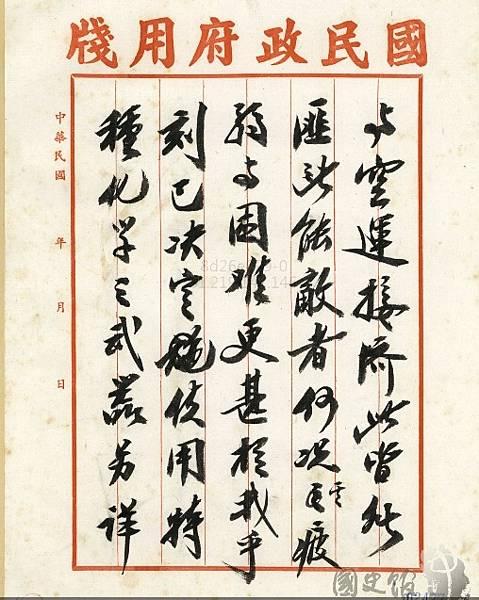 國民政府用牋
与空運接濟此皆非
匪所能敵者何況其疲
弱与困難更甚於我乎
刻已決定使用特
種化学之武器另詳
中華民國 年 月 日
國史館